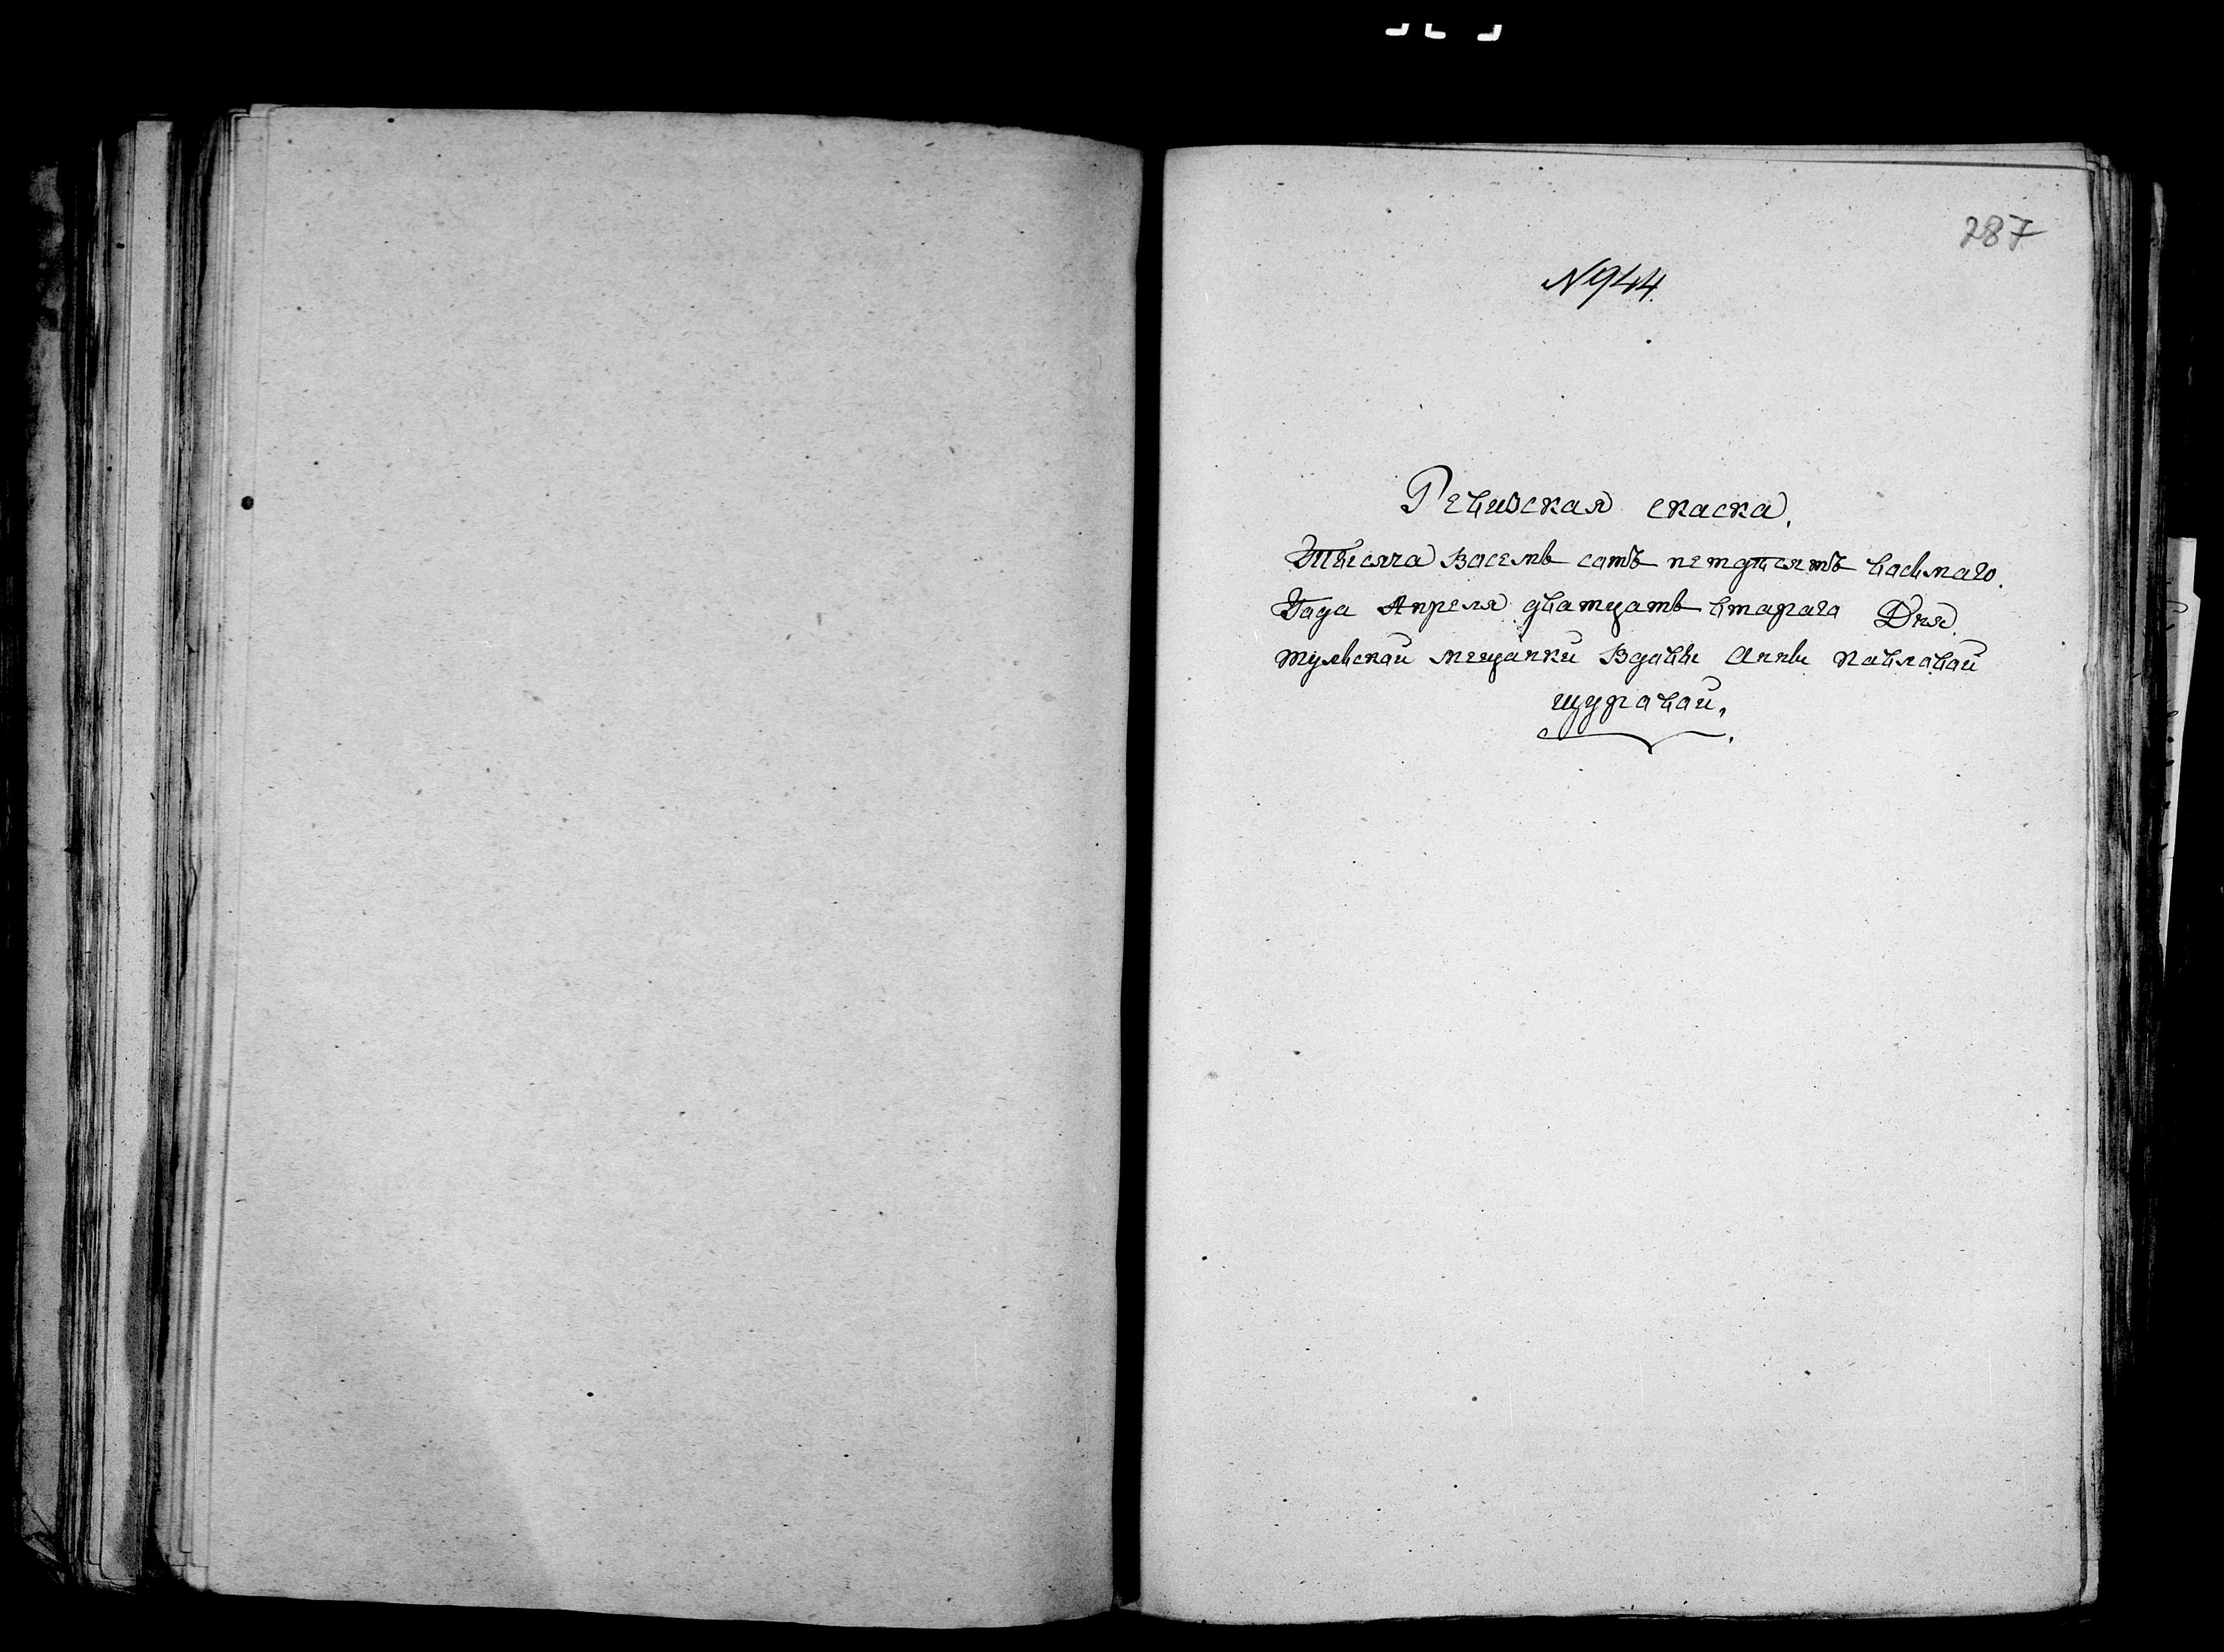 287
№944.
Ревизская скаска.
Тысяча Восемь сотъ петдисятъ васьмаго.
Года Апреля дватцать втарага Дня.
тульской мещанки Вдавы Анны Павлавай
щуравай.